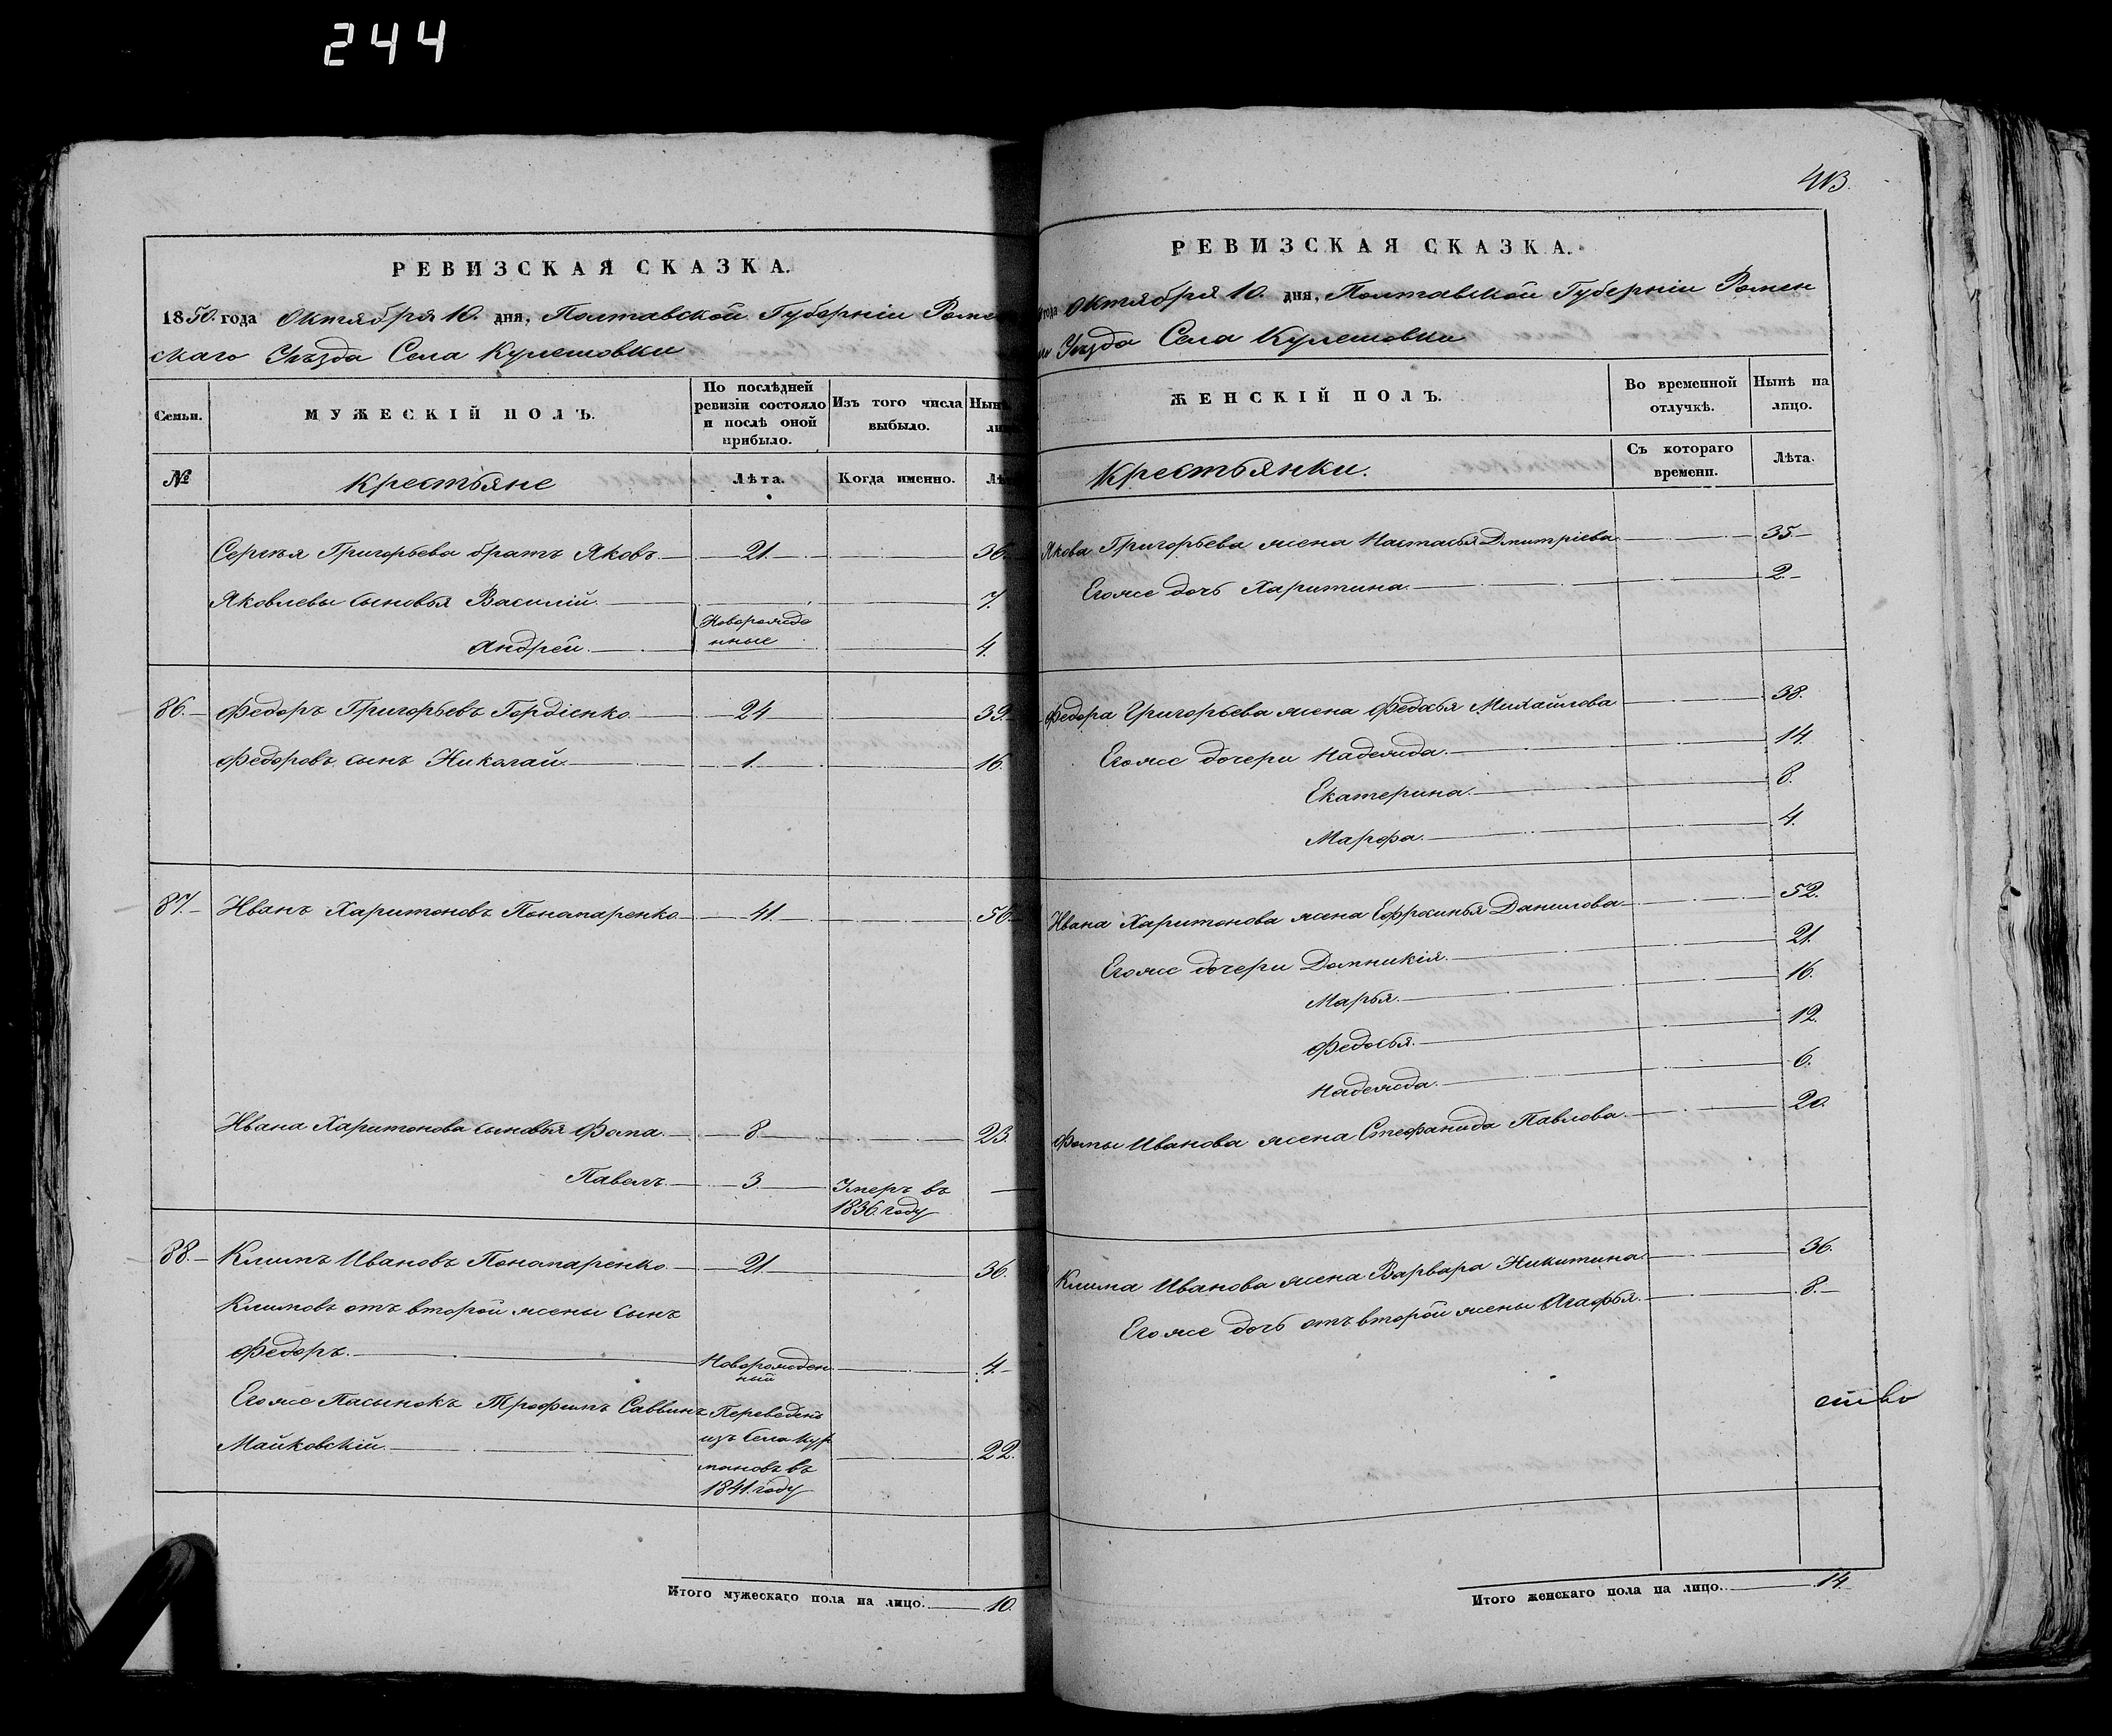 244
413.
РЕВИЗСКАЯ СКАЗКА.
1850. года Октября 10. дня, Полтавской Губерніи Ромен
скаго Уѣзда Села Кулешовки
Семьи.
МУЖЕСКІЙ ПОЛЪ.
По послѣдней ревизіи состояло и послѣ оной прибыло.
Изъ того числа выбыло.
Нынѣ
№
Крестьяне
Лѣта.
Когда именно.
Сергѣя Григорьева братъ Яковъ 21. 36.
Яковлевы сыновья Василій. 7.
Новорожде
нные
Андрей. 4.
86. Федоръ Григорьевъ Гордіенко 24 39.
Федоровъ сынъ Николай 1. 16.
87. Иванъ Харитоновъ Понамаренко 41. 56.
Ивана Харитонова сыновья Фома. 8. 23.
Павелъ 3. Умеръ въ
1836. году
88. Климъ Ивановъ Понамаренко. 21 36.
Климовъ отъ второй жены сынъ
Федоръ. Новорожден
ный 4.
Егоже Пасынокъ Трофимъ Саввинъ Переведенъ
Майковскій изъ Села Кур 22.
мановъ въ
1841. году
Итого мужескаго пола на лицо. 10.
РЕВИЗСКАЯ СКАЗКА.
года Октября 10. дня, Полтавской Губерніи Ромен
Уѣзда Села Кулешовки
ЖЕНСКІЙ ПОЛЪ.
Во временной отлучкѣ.
Нынѣ на лицо.
Крестьянки.
Съ котораго времени.
Лѣта.
Якова Григорьева жена Настасья Дмитріева 35
Егоже дочь Харитина. 2.
Федора Григорьева жена Федосья Михайлова 38.
Егоже дочери Надежда. 14.
Екатерина. 8.
Марфа. 4.
Ивана Харитонова жена Ефросинья Данилова 52.
Егоже дочери Домникія. 21.
Марья. 16.
Федосья. 12.
Надежда. 6.
Фомы Иванова жена Стефанида Павлова. 20.
Клима Иванова жена Варвара Никитина. 36.
Егоже дочь отъ второй жены Агафья. 8.
ство
Итого женскаго пола на лицо. 14